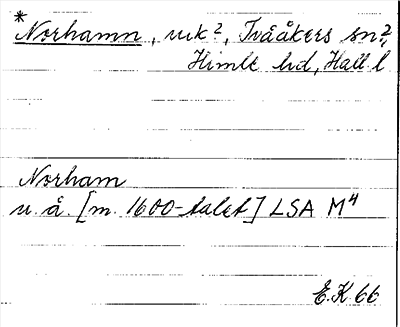 *
Norhamn, vik?, Tvååkers sn?,
Himle hd, Hall. l
Norham
u. å. [m. 1600-talet] LSA M4
E.K 66